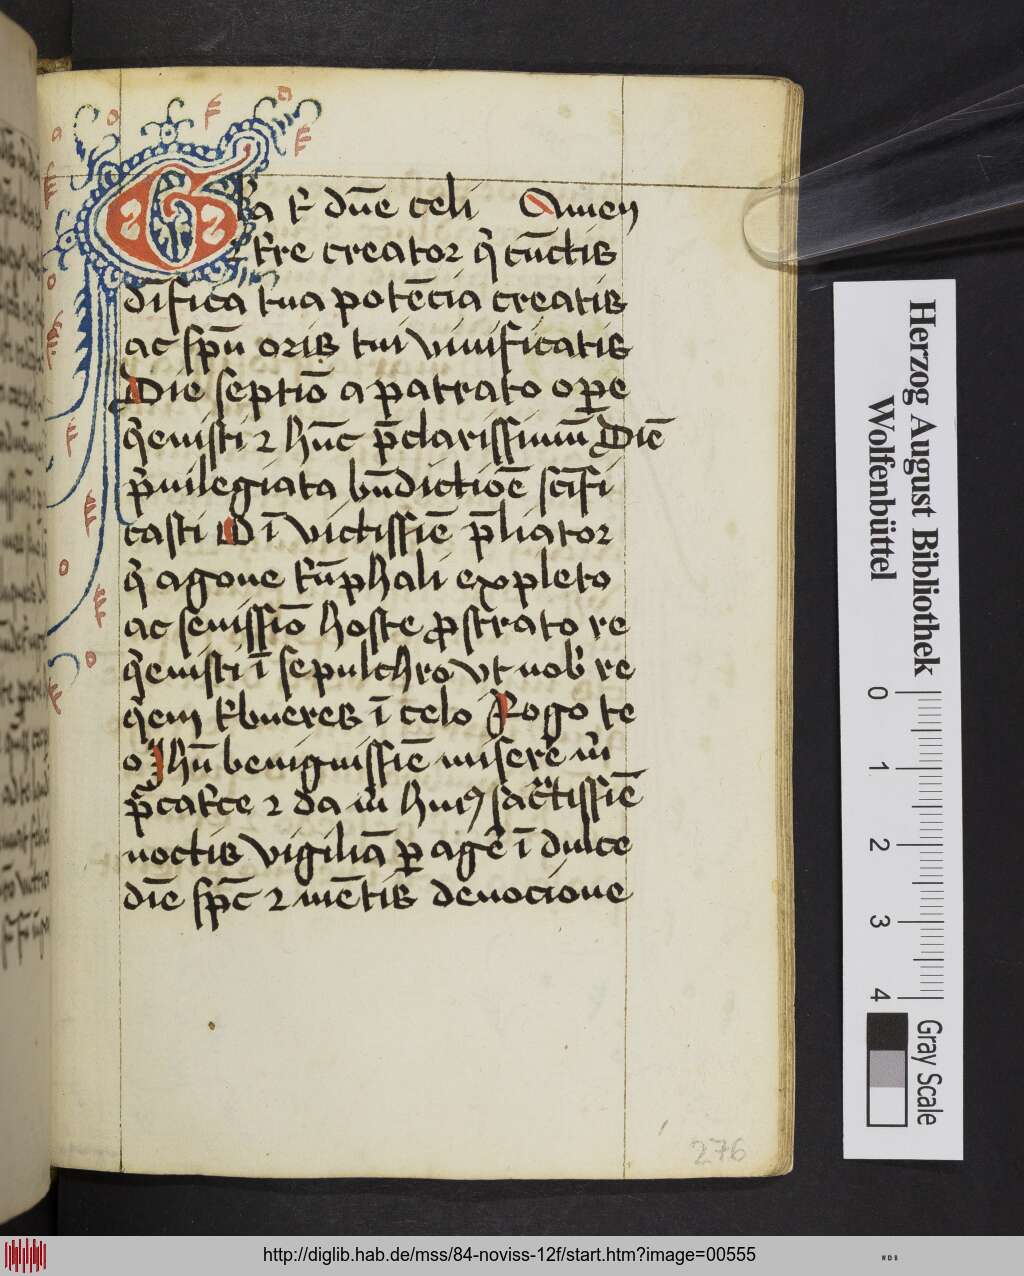 Gra t̄ dn̄e celi Amen
t̄re creator q̄ cūctis
dīfica tua potēcia creatis
ac spū oris tui viuificatis
Die septīo a patrato ope
q̄euisti ⁊ hūc p̄clarissimū Diē
p̄uilegiata bn̄dictiōe scīfi
casti D ī victissīe p̄liator
q̄ agone t̄ūphali expleto
ac seuissīo hoste ꝓstrato re
q̄euisti ī sepulchro vt nob̄ re
q̄em t̄bueres ī celo Rogo te
o Jhū benignissīe miserēe m̄
p̄catrce ⁊ da m̄ huiꝰ sacr̄tissīe
noctis vigiliā ꝑagē ī dulce
dīe spc̄ ⁊ mētis deuocione
276
Herzog August Bibliothek
Wolfenbüttel
0 1 2 3 4
Gray Scale
http://diglib.hab.de/mss/84-noviss-12f/start.htm?image=00555